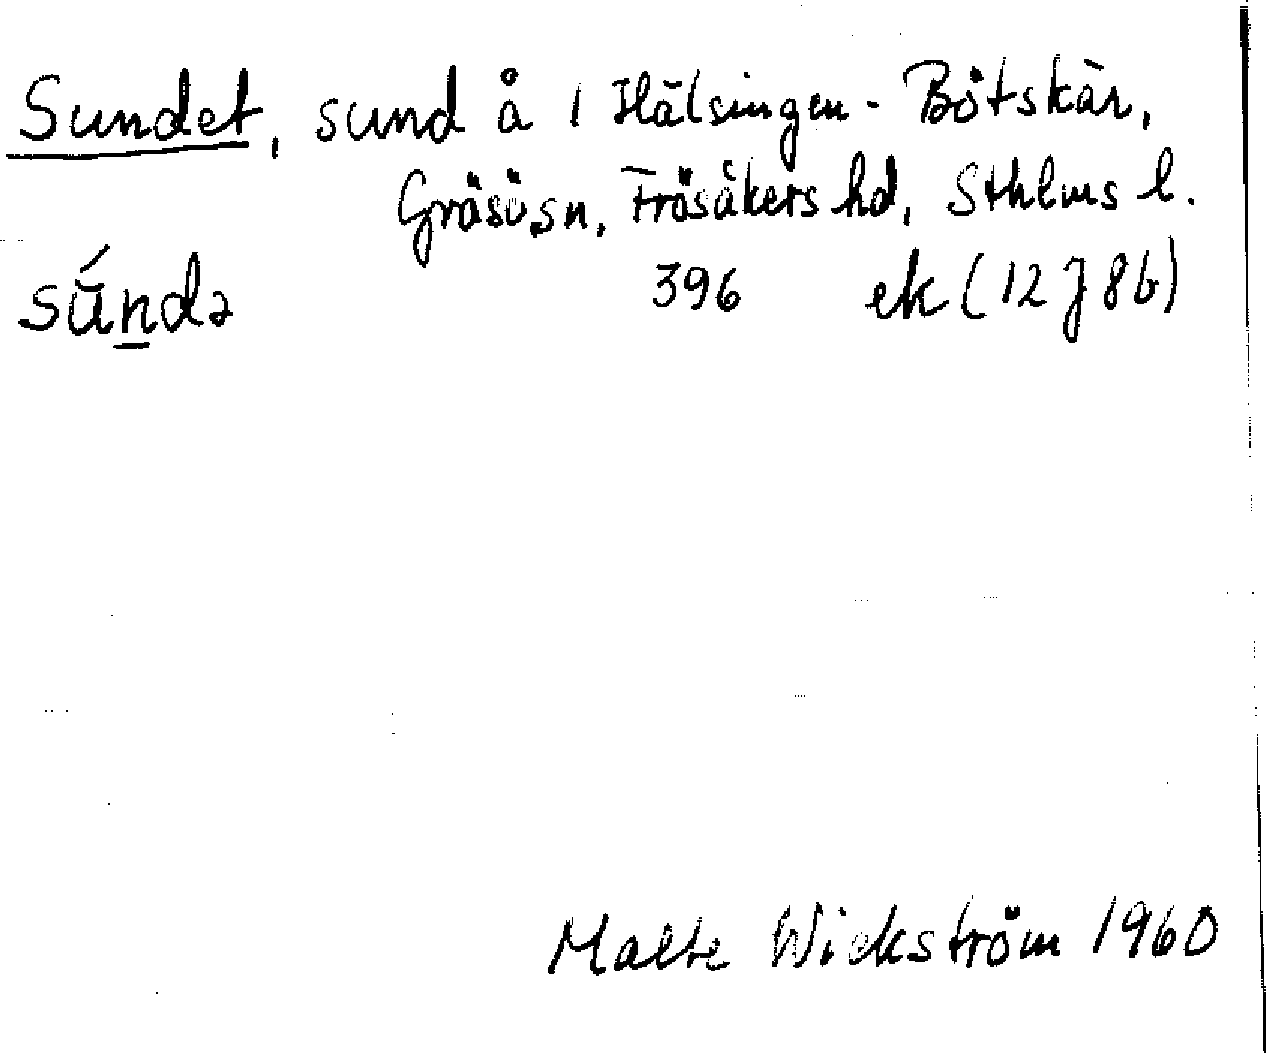 Sundet, sund å 1 Hälsingen - Bötskär,
Gräsö sn, Frösåkers hd, Sthlms l.
sú̄n̲də 396 ek (12 J 8 b)
Malte Wickström 1960